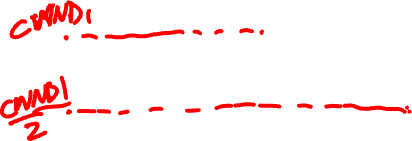 CWND1
CWND1
2